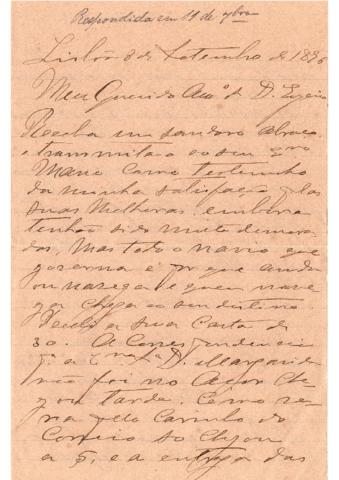 Respondida em 11 de 7bro
Lisboa 8 de Setembro de 1886
Meu Querido Amº D. Eugenio
Receba um saudoso abraço
e transmita-o ao seu
Mano como testimunho
da minha satisfação pelas
suas melhoras, embora
tenhão sido muito demora
das. Mas todo o navio que
governa é porque anda
ou navega e quem nave
ga chega ao seu destino.
a sua Carta de
30. A Correspondencia
D. Margarida
não foi no che
gou tarde. Como re
pelo Carrinho do
Correio so chegou
a 5, e a entrega das